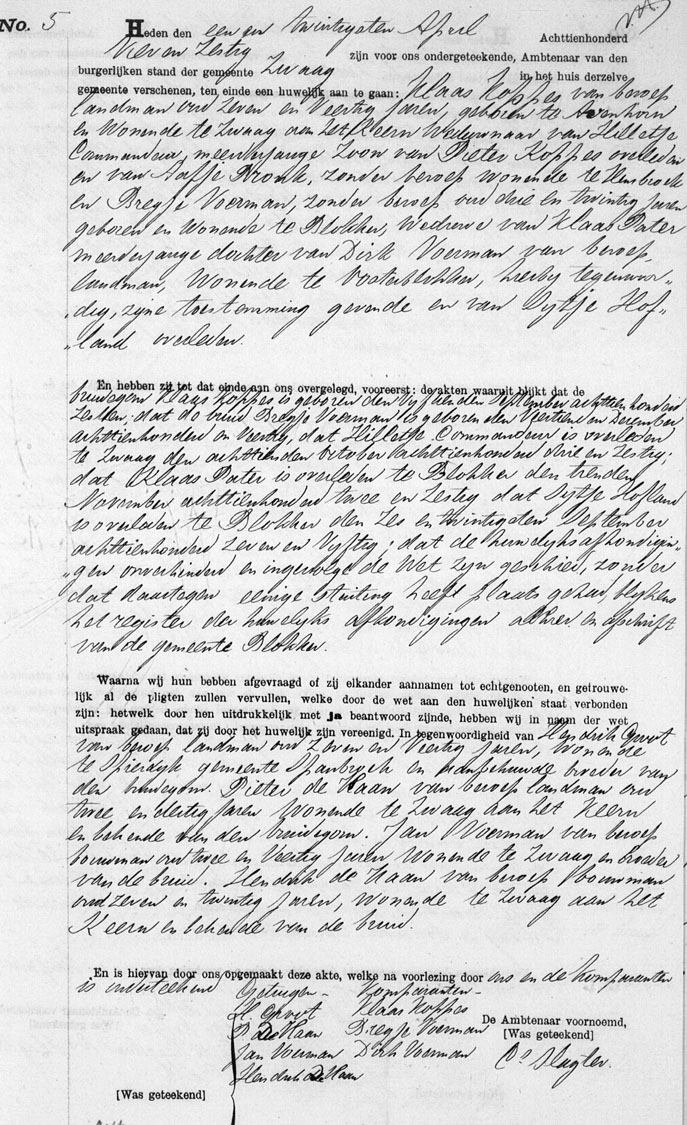 No. 5
Heden den een en twintigsten April Achttienhonderd
Vier en Zestig zijn voor ons ondergeteekende, Ambtenaar van den
burgerlijken stand der gemeente Zwaag in het huis derzelve
gemeente verschenen, ten einde een huwelijk aan te gaan: Klaas Koppes van beroep
landman oud Zeven en Veertig Jaren, geboren te Avenhorn
en Wonende te Zwaag aan het Keern Weduwnaar van Hilletje
Commandeur, meerderjarige Zoon van Pieter Koppes overleden
en van Aafje Bronk, zonder beroep wonende te Hensbroek
en Bregje Voerman, zonder beroep oud drie en twintig Jaren
geboren en Wonende te Blokker, Weduwe van Klaas Pater
meerderjarige dochter van Dirk Voerman van beroep
landman, Wonende te Oosterblokker, hierbij tegenwoor-
dig, zijne toestemming gevende en van Dytje Hof-
land overleden.
En hebben zij tot dat einde aan ons overgelegd, vooreerst: de akten waaruit blijkt dat de
bruidegom Klaas Koppes is geboren den Vijftienden September achttienhonderd
Zestien; dat de bruid Bregje Voerman is geboren den Veertienen December
achttienhonderd en Veertig, dat Hilletje Commandeur is overleden
te Zwaag den achttienden October achttienhonderd drie en Zestig;
dat Klaas Pater is overleden te Blokker den tienden
November achttienhonderd twee en Zestig dat Dytje Hofland
is overleden te Blokker den Zes en twintigsten September
achttienhonderd Zeven en Vijftig; dat de huwelijksafkondigin-
gen onverhinderd en ingevolge de Wet zijn geschied, zonder
dat daartegen eenige stuiting heeft plaats gehad, blijkens
het register der huwelijks afkondigingen alhier en afschrift
van de gemeente Blokker.
Waarna wij hun hebben afgevraagd of zij elkander aannamen tot echtgenooten, en getrouwe-
lijk al de pligten zullen vervullen, welke door de wet aan den huwelijken staat verbonden
zijn: hetwelk door hen uitdrukkelijk met ja beantwoord zijnde, hebben wij in naam der wet
uitspraak gedaan, dat zij door het huwelijk zijn vereenigd. In tegenwoordigheid van Hendrik Gevert
van beroep landman oud Zeven en Veertig Jaren, Wonende
te Spierdyk gemeente Spanbroek en aanbehuwde broeder van
den bruidegom. Pieter de Haan van beroep landman oud
twee en dertig Jaren Wonende te Zwaag aan het Keern
en bekende van den bruidegom. Jan Voerman van beroep
bouwman oud twee en Veertig Jaren Wonende te Zwaag en broeder
van de bruid. Hendrik de Haan van beroep bouwman
oud Zeven en twintig Jaren, wonende te Zwaag aan het
Keern en bekende van de bruid.
En is hiervan door ons opgemaakt deze akte, welke na voorlezing door ons en de Komparanten
is onderteekend
Getuigen - Komparanten -
H. Gevert Klaas Koppes
P. De Haan Bregje Voerman
Jan Voerman Dirk Voerman
Hendrik De Haan
De Ambtenaar voornoemd,
[Was geteekend]
Cs Slagter.
[Was geteekend]